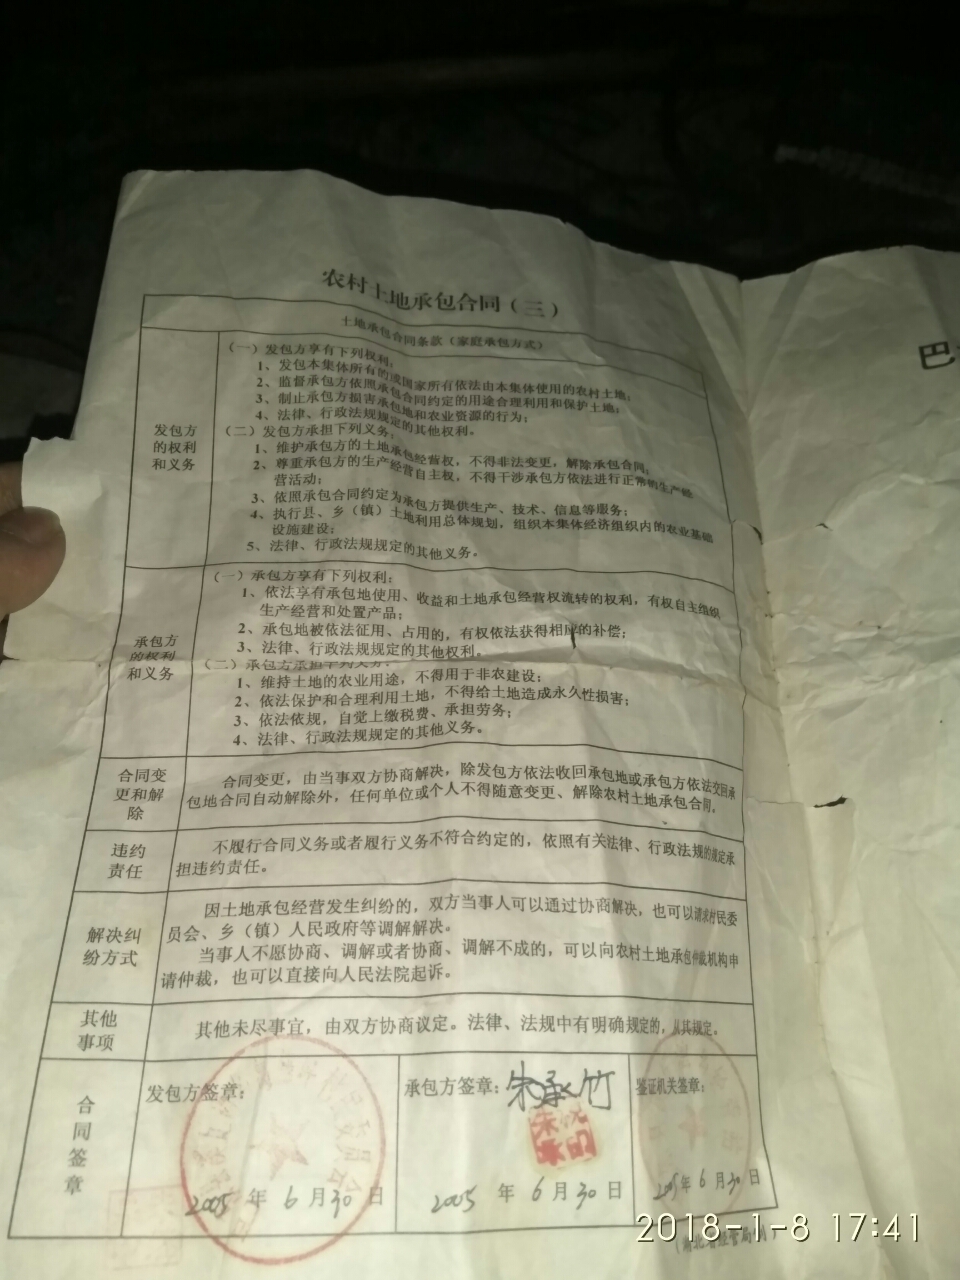 农村土地承包合同（三）
土地承包合同条款（家庭承包方式）
发包方
的权利
和义务
（一）发包方享有下列权利：
1、发包本集体所有的或国家所有依法由本集体使用的农村土地；
2、监督承包方依照承包合同约定的用途合理利用和保护土地；
3、制止承包方损害承包地和农业资源的行为；
4、法律、行政法规规定的其他权利。
（二）发包方承担下列义务：
1、维护承包方的土地承包经营权，不得非法变更，解除承包合同；
2、尊重承包方的生产经营自主权，不得干涉承包方依法进行正常的生产经
营活动；
3、依照承包合同约定为承包方提供生产、技术、信息等服务；
4、执行县、乡（镇）土地利用总体规划，组织本集体经济组织内的农业基础
设施建设；
5、法律、行政法规规定的其他义务。
承包方
的权利
和义务
（一）承包方享有下列权利：
1、依法享有承包地使用、收益和土地承包经营权流转的权利，有权自主组织
生产经营和处置产品；
2、承包地被依法征用、占用的，有权依法获得相应的补偿；
3、法律、行政法规规定的其他权利。
（二）承包方承担下列义务：
1、维持土地的农业用途，不得用于非农建设；
2、依法保护和合理利用土地，不得给土地造成永久性损害；
3、依法依规，自觉上缴税费、承担劳务；
4、法律、行政法规规定的其他义务。
合同变
更和解
除
合同变更，由当事双方协商解决，除发包方依法收回承包地或承包方依法交回承
包地合同自动解除外，任何单位或个人不得随意变更、解除农村土地承包合同。
违约
责任
不履行合同义务或者履行义务不符合约定的，依照有关法律、行政法规的规定承
担违约责任。
解决纠
纷方式
因土地承包经营发生纠纷的，双方当事人可以通过协商解决，也可以请求村民委
员会、乡（镇）人民政府等调解解决。
当事人不愿协商、调解或者协商、调解不成的，可以向农村土地承包仲裁机构申
请仲裁，也可以直接向人民法院起诉。
其他
事项
其他未尽事宜，由双方协商议定。法律、法规中有明确规定的，从其规定。
合
同
签
章
发包方签章：
2005 年 6 月 30 日
承包方签章：朱承竹
2005 年 6 月 30 日
鉴证机关签章：
2005 年 6 月 30 日
巴
2018-1-8 17:41